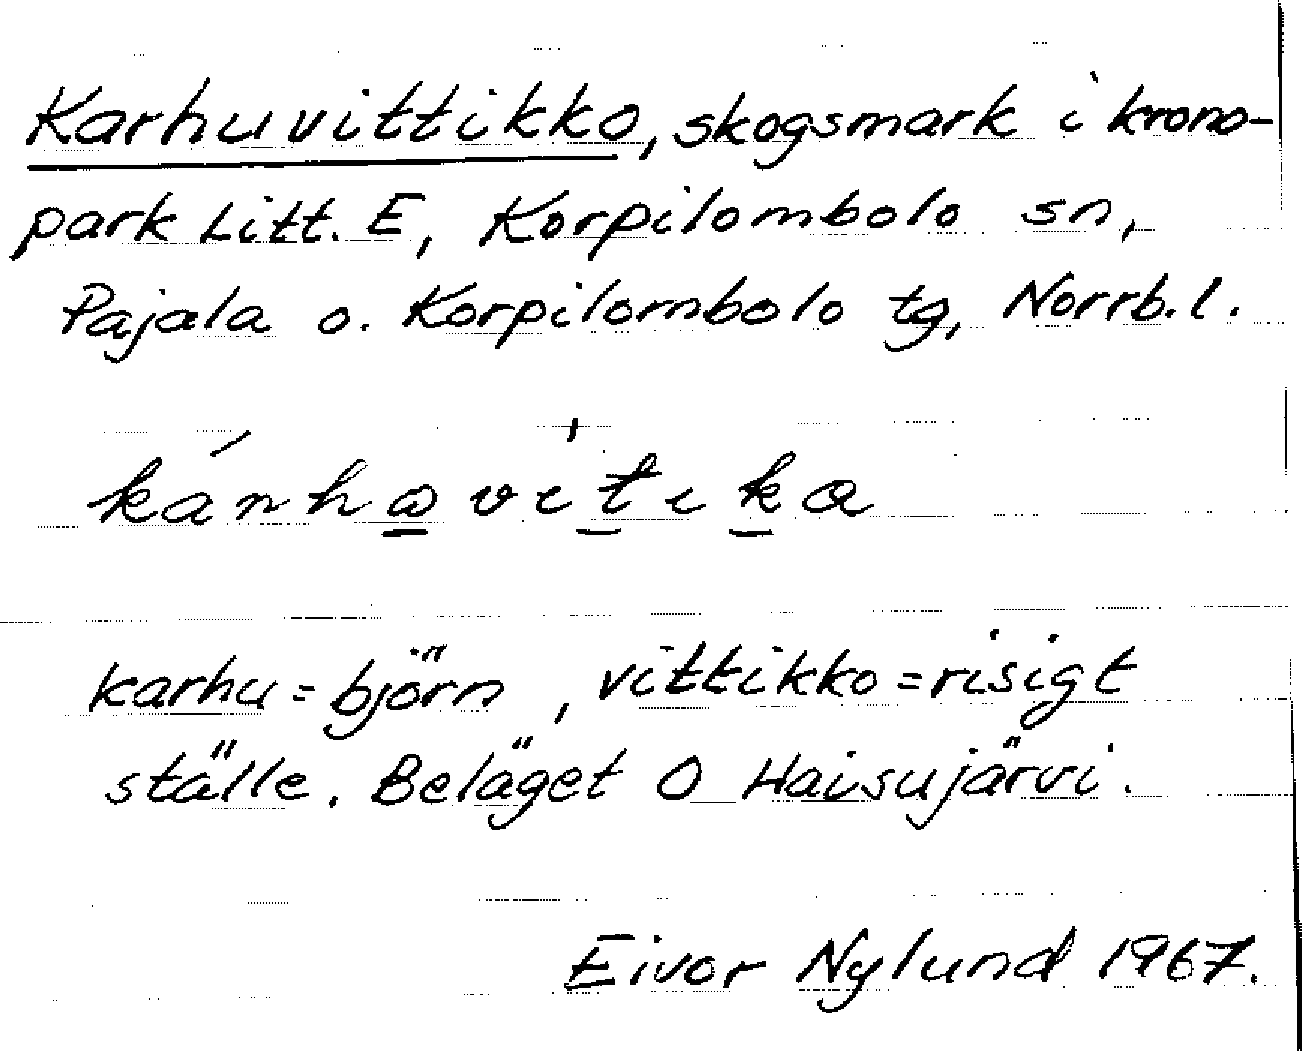 Karhuvittikko, skogsmark i krono-
park Litt. E, Korpilombolo sn,
Pajala o. Korpilombolo tg, Norrb.l.
karhu = björn, vittikko = risigt
ställe. Beläget O Haisujärvi.
Eivor Nylund 1967.